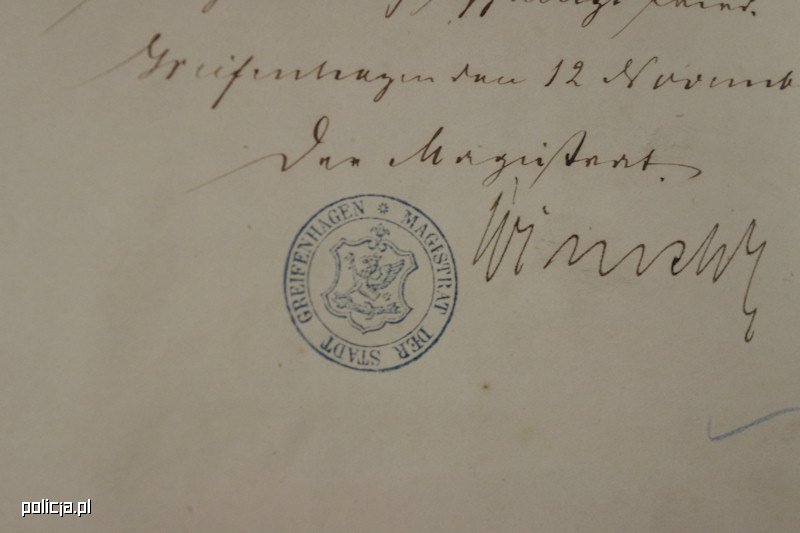 Greifenhagen den 12 Novemb
Der Magistrat.
MAGISTRAT DER STADT GREIFENHAGEN
policja.pl